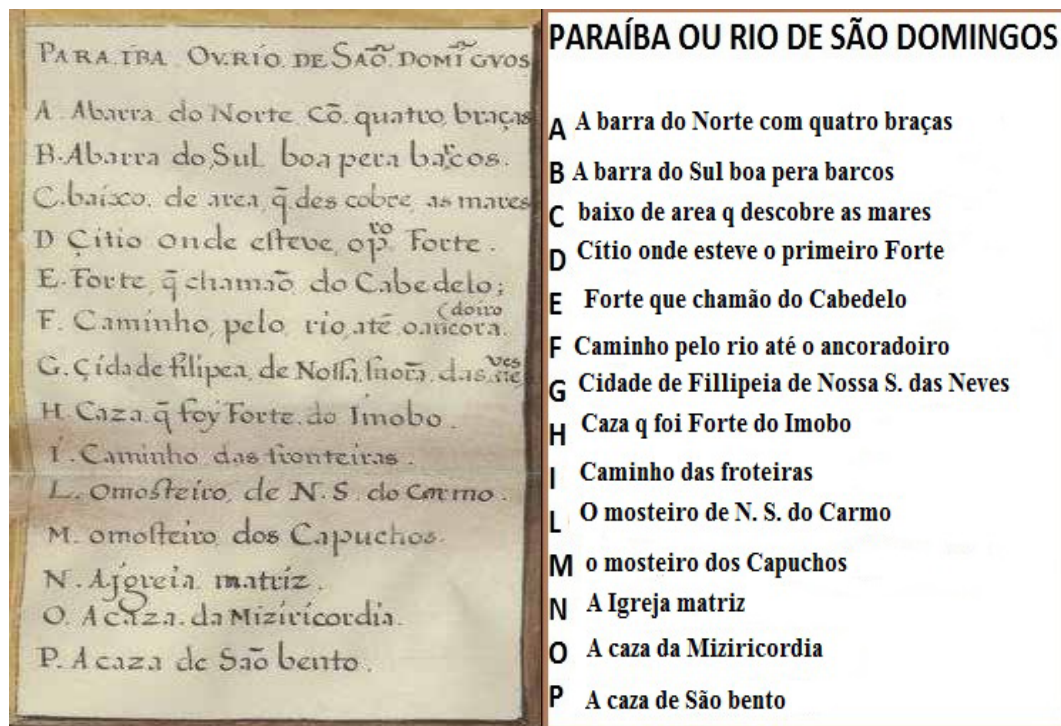 PARAIBA OV RIO DE SAÕ DOMĨGVOS
A. Abarra do Norte cõ quatro braças
B. Abarra do Sul boa pera barcos.
C. baixo de area q̃ des cobre as mares
D Çitio onde esteve o pro Forte.
E. Forte q̃ chamaõ do Cabedelo;
F. Caminho pelo rio até o ancora(doiro
G. Çidade filipea de Nossa snorã das neves
H. Caza q̃ foy Forte do Imobo.
I. Caminho das fronteiras.
L. Omosteiro de N. S. do Carmo.
M. omosteiro dos Capuchos.
N. A jgreia matriz.
O. A caza da Miziricordia.
P. A caza de Saõ bento.
PARAÍBA OU RIO DE SÃO DOMINGOS
A A barra do Norte com quatro braças
B A barra do Sul boa pera barcos
C baixo de area q descobre as mares
D Cítio onde esteve o primeiro Forte
E Forte que chamão do Cabedelo
F Caminho pelo rio até o ancoradoiro
G Cidade de Fillipeia de Nossa S. das Neves
H Caza q foi Forte do Imobo
I Caminho das froteiras
L O mosteiro de N. S. do Carmo
M o mosteiro dos Capuchos
N A Igreja matriz
O A caza da Miziricordia
P A caza de São bento